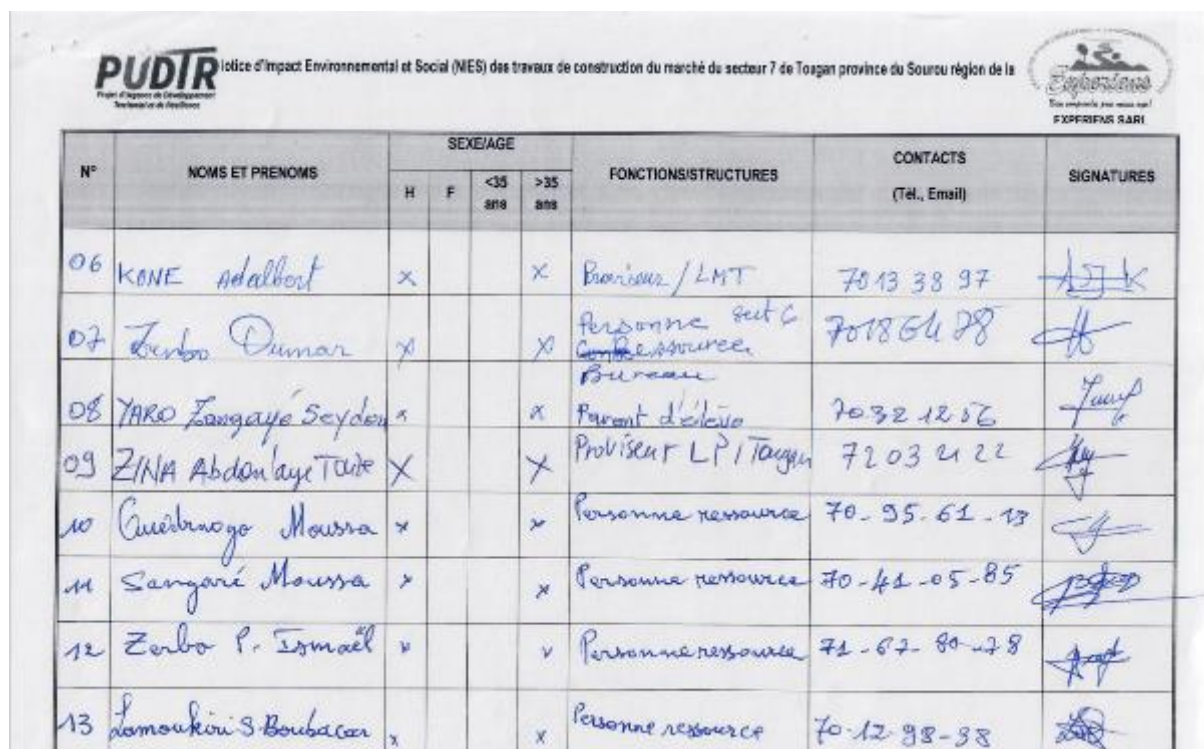 PUDTR
Projet d'Urgence de Développement
Territorial et de Résilience
Notice d'Impact Environnemental et Social (NIES) des travaux de construction du marché du secteur 7 de Tougan province du Sourou région de la
Experiens
EXPERIENS SARL
N° NOMS ET PRENOMS SEXE/AGE FONCTIONS/STRUCTURES CONTACTS (Tél., Email) SIGNATURES
H F <35 ans >35 ans
06 KONE Adalbert x x Proviseur / LMT 70 13 38 97
07 Zerbo Oumar x x Personne sect 6 Ressource 70 18 64 78
Bureau
08 YARO Zangayé Seydou x x Parent d'élève 70 32 12 56
09 ZINA Abdoulaye x x Proviseur LP/Tougan 72 03 21 22
10 Moussa x x Personne ressource 70-95-61-13
11 Sangaré Moussa x x Personne ressource 70-41-05-85
12 Zerbo P. Ismaël x x Personne ressource 71-67-80-78
13 S. Boubacar x x Personne ressource 70-12-98-38